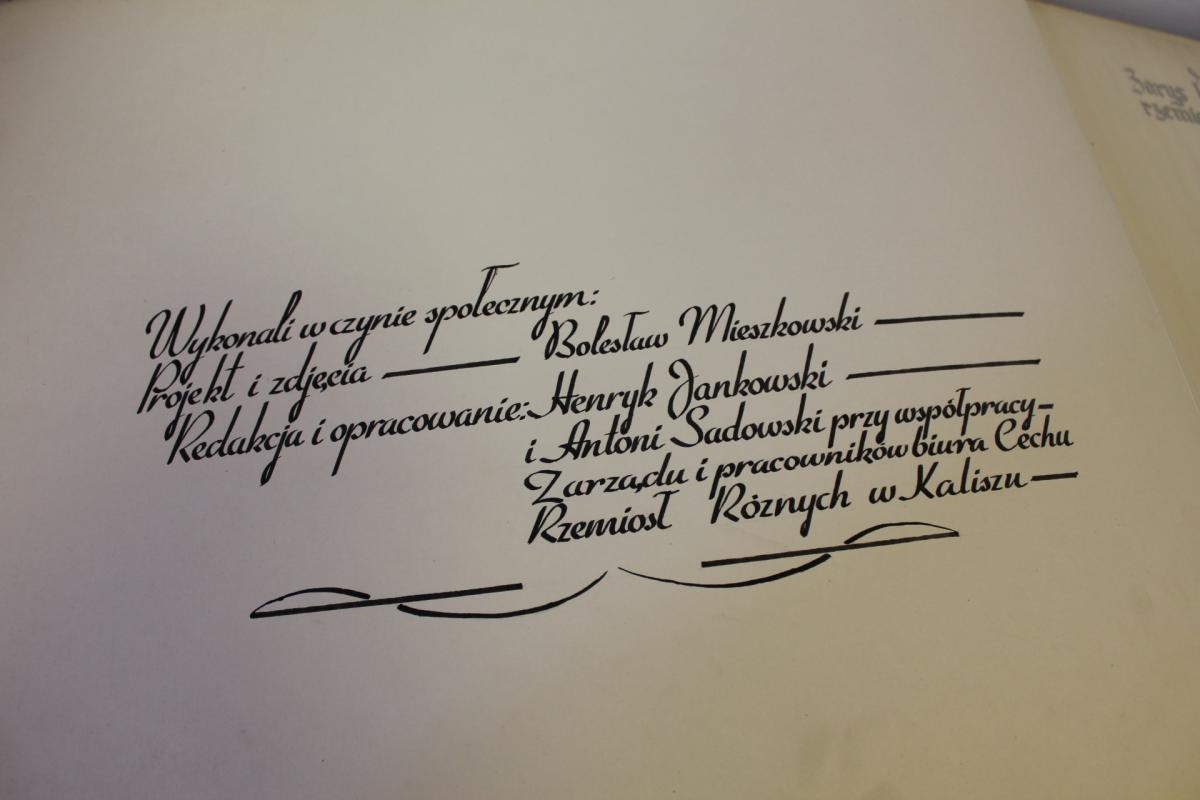 Wykonali w czynie społecznym:
Projekt i zdjęcia — Bolesław Mieszkowski —
Redakcja i opracowanie: Henryk Jankowski —
i Antoni Sadowski przy współpracy-
Zarządu i pracowników biura Cechu
Rzemiosł Różnych w Kaliszu —
Zarys